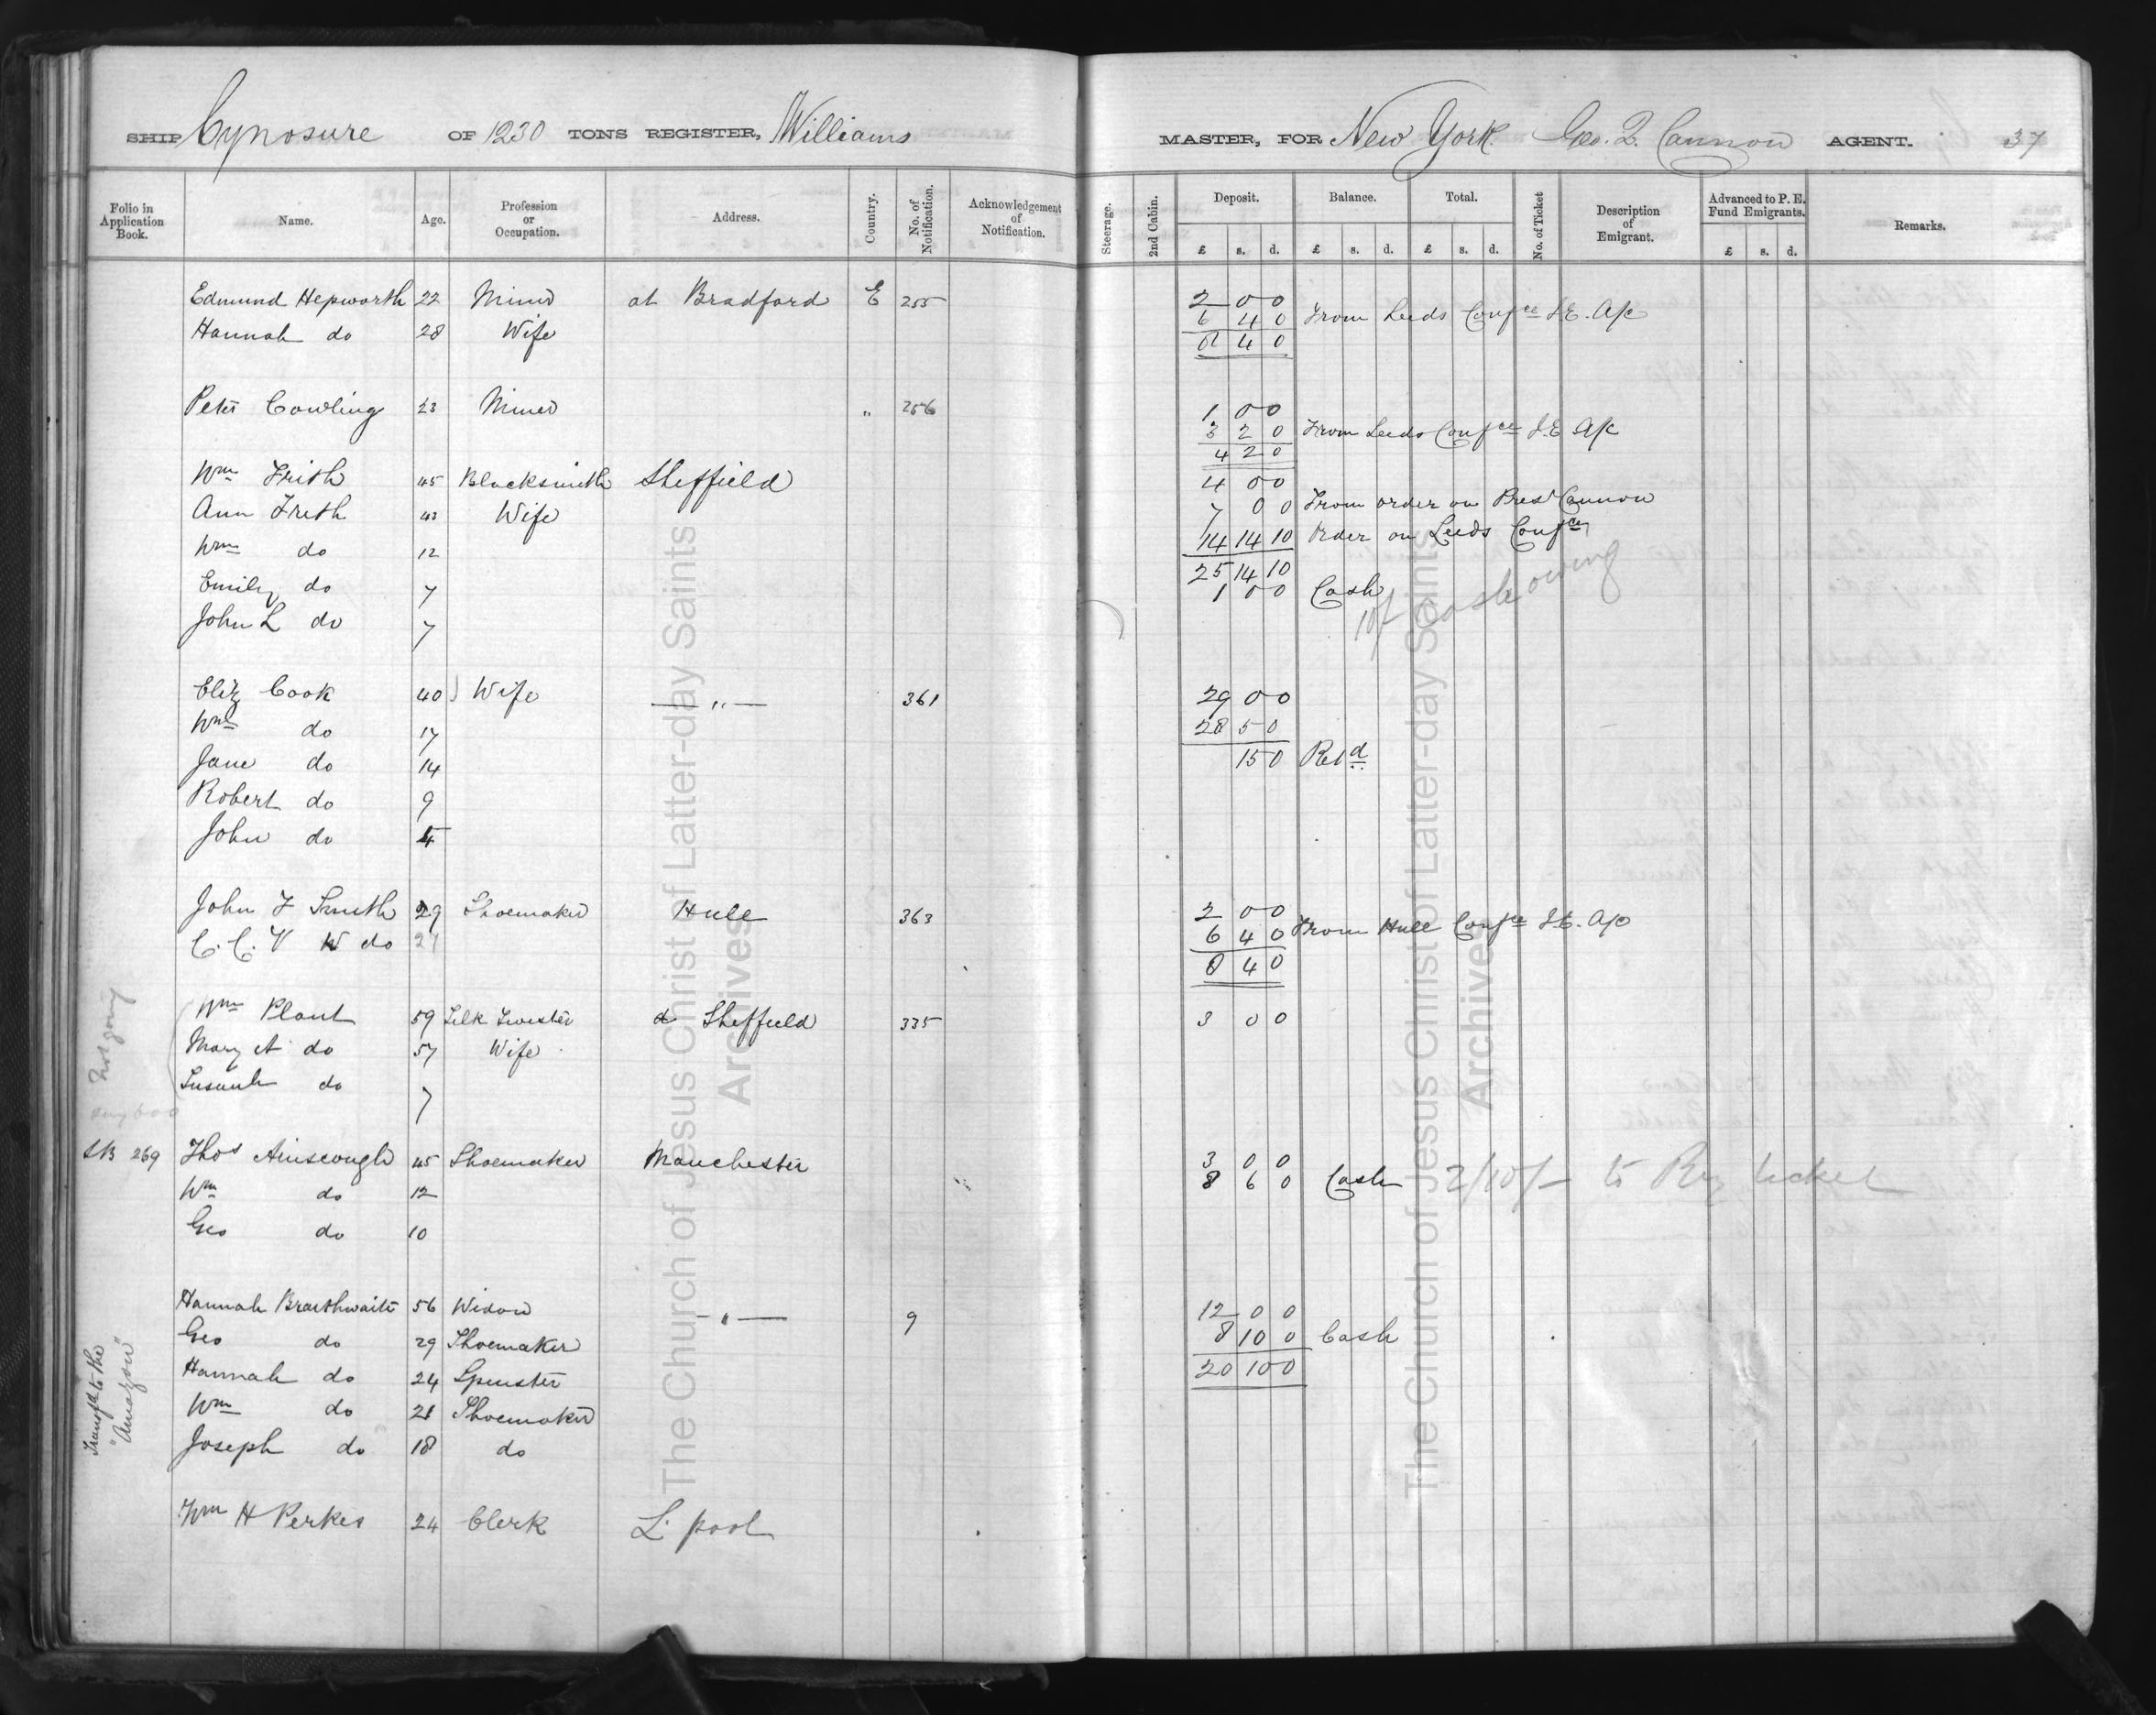 SHIP Cynosure OF 1230 TONS REGISTER, Williams MASTER, FOR New York. Geo. Q. Cannon AGENT. 37
Folio in Application Book. Name. Age. Profession or Occupation. Address. Country. No. of Notification. Acknowledgement of Notification. Steerage. 2nd Cabin. Deposit. Balance. Total. No. of Ticket Description of Emigrant. Advanced to P. E. Fund Emigrants. Remarks.
£ s. d. £ s. d. £ s. d. £ s. d.
Edmund Hepworth 22 Miner at Bradford E 255 2 0 0
6 4 0 From Leeds Confce I.E. A/c
Hannah do 28 Wife 8 4 0
Peter Cowling 23 Miner " 256 1 0 0
3 2 0 From Leeds Confce I.E A/c
4 2 0
Wm Frith 45 Blacksmith Sheffield 4 0 0
Ann Frith 43 Wife 7 0 0 From order on Prest Cannon
Wm do 12 14 14 10 Order on Leeds Confce
25 14 10
Emily do 7 1 0 0 Cash
10/ Cash owing
John L do 7
Eliz Cook 40 Wife — " — 361 29 0 0
Wm do 17 28 5 0
Jane do 14 15 0 Retd
Robert do 9
John do 4
John F Smith 29 Shoemaker Hull 363 2 0 0
C. C. V W do 27 6 4 0 From Hull Confce I.E. A/c
8 4 0
Not going
Wm Plant 59 Silk Twister d Sheffield 335 3 0 0
Mary A do 57 Wife
Susanh do 7
269 Thos Ainscough 45 Shoemaker Manchester 3 0 0
Wm do 12 8 6 0 Cash 2/10/- to Ry ticket
Geo do 10
Transfd to the "Amazon"
Hannah Braithwaite 56 Widow — " — 9 12 0 0
Geo do 29 Shoemaker 8 10 0 Cash
Hannah do 24 Spinster 20 10 0
Wm do 21 Shoemaker
Joseph do 18 do
Wm H Perkes 24 Clerk L'pool
The Church of Jesus Christ of Latter-day Saints
Archives
The Church of Jesus Christ of Latter-day Saints
Archives